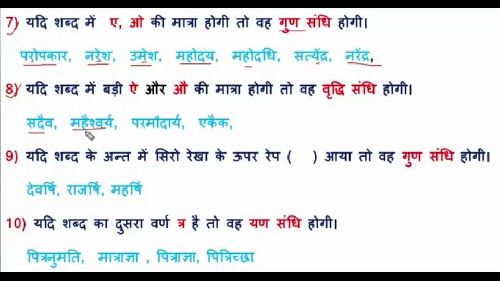 7) यदि शब्द में ए, ओ की मात्रा होगी तो वह गुण संधि होगी।
परोपकार, नरेश, उमेश, महोदय, महोदधि, सत्येंद्र, नरेंद्र,
8) यदि शब्द में बड़ी ऐ और औ की मात्रा होगी तो वह वृद्धि संधि होगी।
सदैव, महैश्वर्य, परमौदार्य, एकैक,
9) यदि शब्द के अन्त में सिरो रेखा के ऊपर रेप ( ) आया तो वह गुण संधि होगी।
देवर्षि, राजर्षि, महर्षि
10) यदि शब्द का दुसरा वर्ण त्र है तो वह यण संधि होगी।
पित्रनुमति, मात्राज्ञा , पित्राज्ञा, पित्रिच्छा